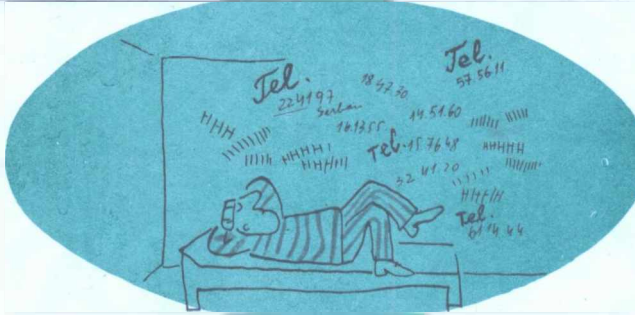 Tel.
22 41 97
Serban
18 47 30
Tel.
57 56 11
14.51.60
16.1355
Tel. 15.76.48
32 41 20
Tel.
61 14 44